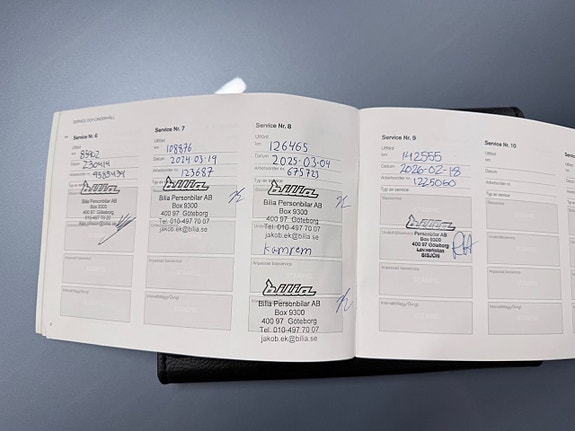 SERVICE OCH UNDERHÅLL
Service Nr. 6
Utförd
km
Datum 230414
Arbetsorder nr. 9585434
Typ av service
bilia
Bilia Personbilar AB
Box 9300
400 97 Göteborg
Tel. 010-497 70 07
Service Nr. 7
Utförd
km 108876
Datum 2024-03-19
Arbetsorder nr. 123687
Typ av service
bilia
Bilia Personbilar AB
Box 9300
400 97 Göteborg
Tel. 010-497 70 07
jakob.ek@bilia.se
Service Nr. 8
Utförd
km 126465
Datum 2025-03-04
Arbetsorder nr. 675723
Typ av service
bilia
Bilia Personbilar AB
Box 9300
400 97 Göteborg
Tel. 010-497 70 07
jakob.ek@bilia.se
Kamrem
bilia
Bilia Personbilar AB
Box 9300
400 97 Göteborg
Tel. 010-497 70 07
jakob.ek@bilia.se
Service Nr. 9
Utförd
km 142555
Datum 2026-02-18
Arbetsorder nr. 1225060
Typ av service
bilia
Personbilar AB
Box 9300
400 97 Göteborg
SISJÖN
Service Nr. 10
Utförd
km
Datum
Arbetsorder nr.
Typ av service